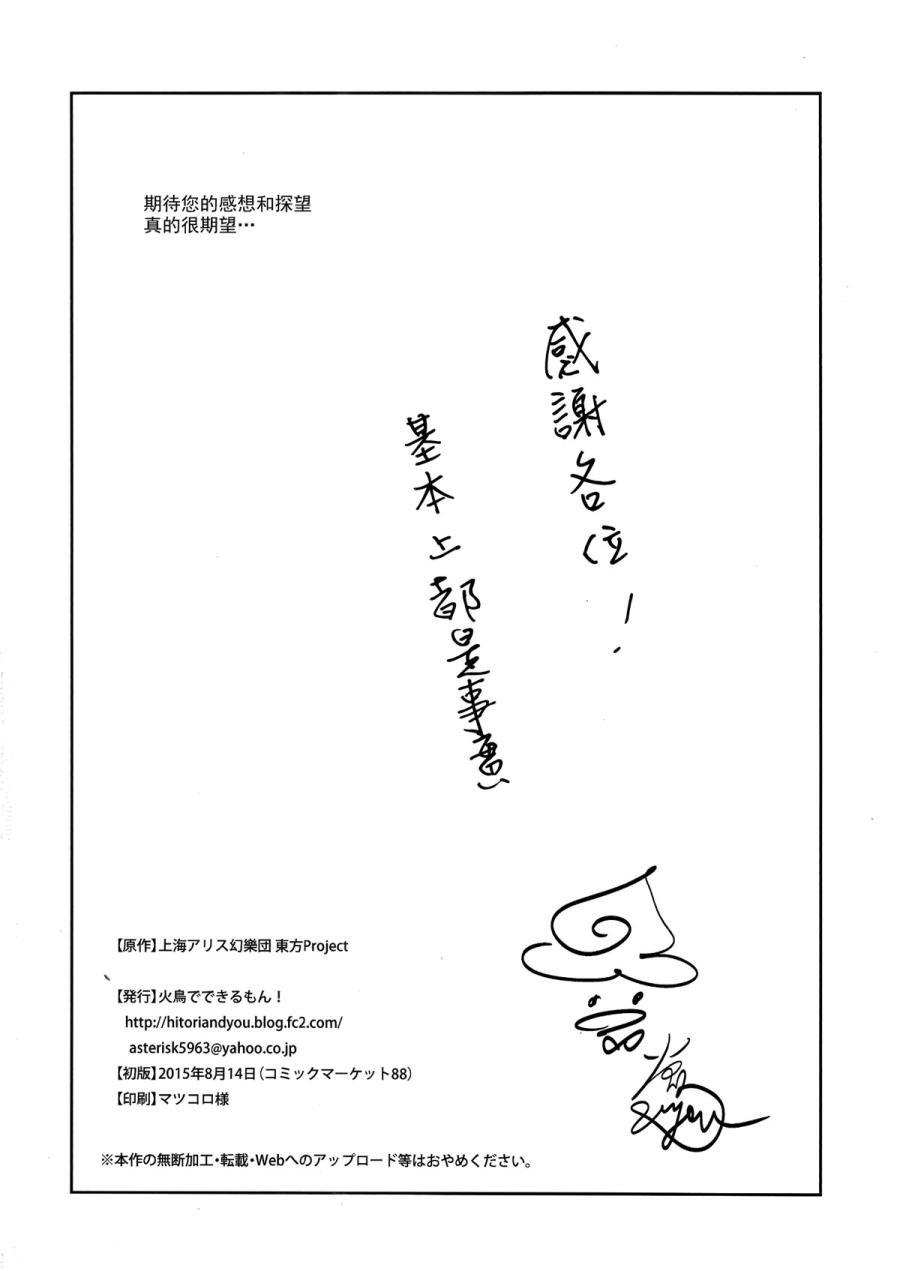 期待您的感想和探望
真的很期望…
感謝各位！
基本上都是事實
【原作】上海アリス幻樂団 東方Project
【発行】火鳥でできるもん！
http://hitoriandyou.blog.fc2.com/
asterisk5963@yahoo.co.jp
【初版】2015年8月14日（コミックマーケット88）
【印刷】マツコロ様
※本作の無断加工・転載・Webへのアップロード等はおやめください。